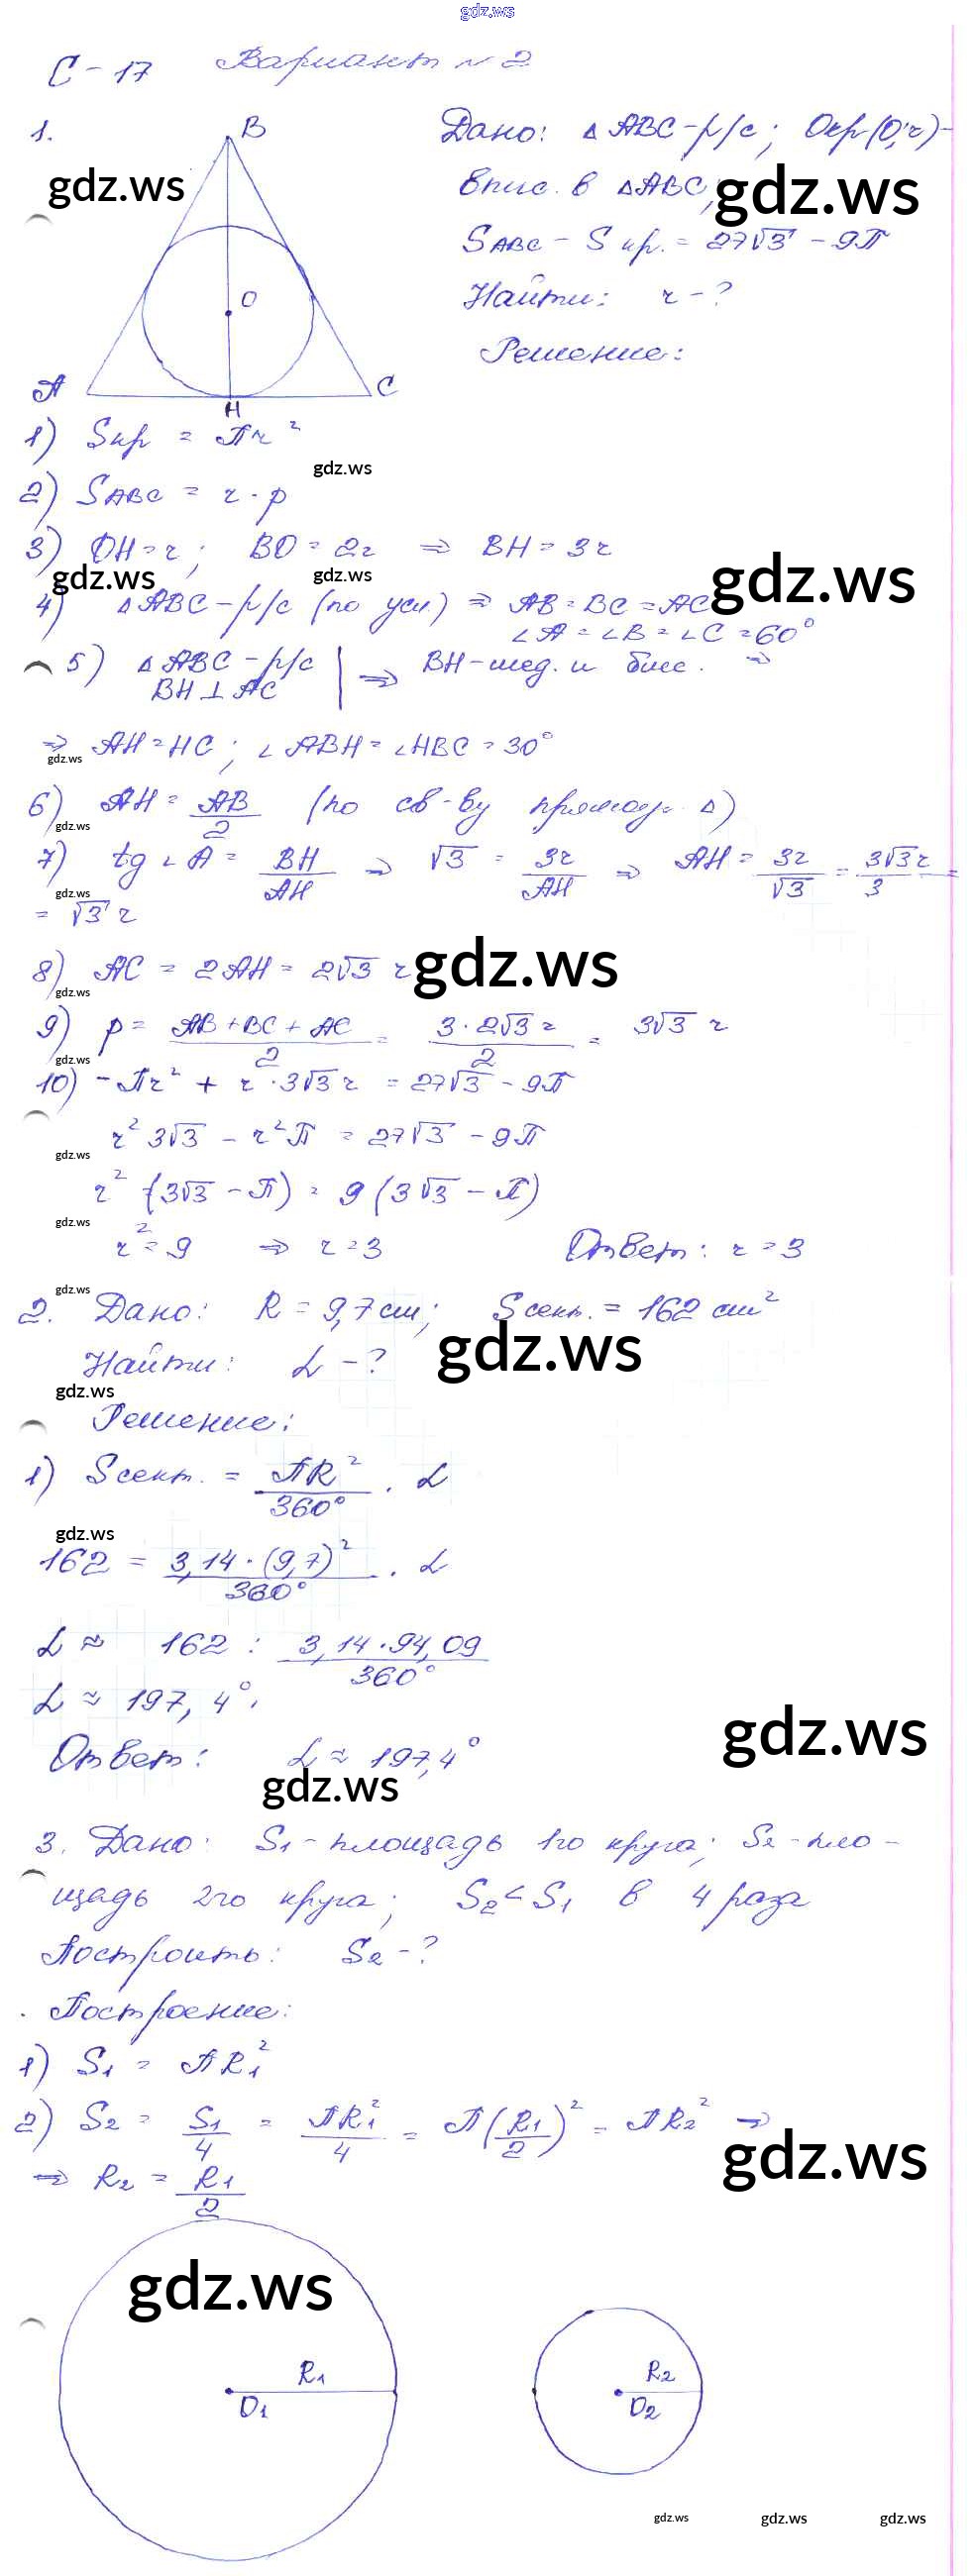 gdz.ws
С-17 Вариант №2
1.
B
O
A
H
C
Дано: △ABC-р/с; Окр(O;r)-
впис. в △ABC;
gdz.ws
gdz.ws
SABC - Sкр. = 27√3 - 9П
Найти: r-?
Решение:
1) Sкр = Пr²
gdz.ws
2) SABC = r · p
3) OH=r; BO=2r ⇒ BH=3r
gdz.ws
gdz.ws
gdz.ws
4) △ABC-р/с (по усл) ⇒ AB=BC=AC
∠A=∠B=∠C=60°
5) △ABC-р/с | ⇒ BH-мед. и бисс. ⇒
BH⊥AC
⇒ AH=HC; ∠ABH=∠HBC=30°
gdz.ws
6) AH = AB/2 (по св-ву прямоуг. △)
gdz.ws
7) tg∠A = BH/AH ⇒ √3 = 3r/AH ⇒ AH = 3r/√3 = 3√3r/3 =
gdz.ws
= √3 r
8) AC = 2AH = 2√3 r
gdz.ws
gdz.ws
9) p = AB+BC+AC/2 = 3·2√3r/2 = 3√3 r
gdz.ws
10) -Пr² + r·3√3r = 27√3 - 9П
r²3√3 - r²П = 27√3 - 9П
gdz.ws
r²(3√3 - П) = 9(3√3 - П)
gdz.ws
r² = 9 ⇒ r=3 Ответ: r=3
gdz.ws
2. Дано: R = 9,7см; Sсект. = 162 см²
gdz.ws
Найти: α-?
gdz.ws
Решение:
1) Sсект. = ПR²/360° · α
gdz.ws
162 = 3,14·(9,7)²/360° · α
α ≈ 162 : 3,14·94,09/360°
α ≈ 197,4°.
gdz.ws
Ответ: α ≈ 197,4°
gdz.ws
3. Дано: S1-площадь 1го круга; S2-пло-
щадь 2го круга; S2<S1 в 4 раза
Построить: S2-?
Построение:
1) S1 = ПR1²
2) S2 = S1/4 = ПR1²/4 = П(R1/2)² = ПR2² ⇒
gdz.ws
⇒ R2 = R1/2
gdz.ws
R1
O1
R2
O2
gdz.ws gdz.ws gdz.ws